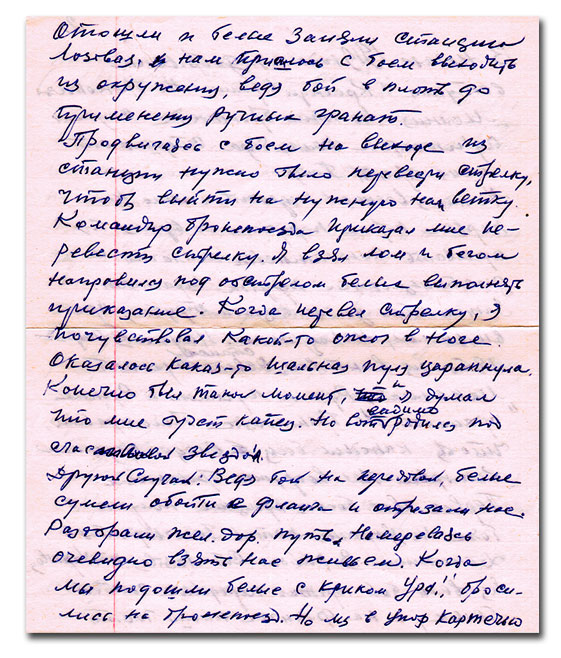 Отошли и белые заняли станцию
Лозовая, и нам пришлось с боем выходить
из окружения, ведя бой в плоть до
применения ручных гранат.
Продвигаясь с боем на выходе из
станции нужно было перевести стрелку,
чтобы выйти на нужную нам ветку.
Командир бронепоезда приказал мне пе-
ревести стрелку. Я взял лом и бегом
направился под обстрелом белых выполнять
приказание. Когда перевел стрелку, я
почувствовал какой-то ожог в ноге
Оказалось какая-то шальная пуля царапнула.
Конечно был такой момент, и я думал
что мне будет капец. Но видимо родился под
счастливой звездой.
Другой Случай: Ведя бой на передовой, белые
сумели обойти с фланга и отрезали нас.
Разобрали жел. дор. путь, Намереваясь
очевидно взять нас живьем. Когда
мы подошли белые с криком Ура!, броси-
лись на бронепоезд. Но мы в упор картечью